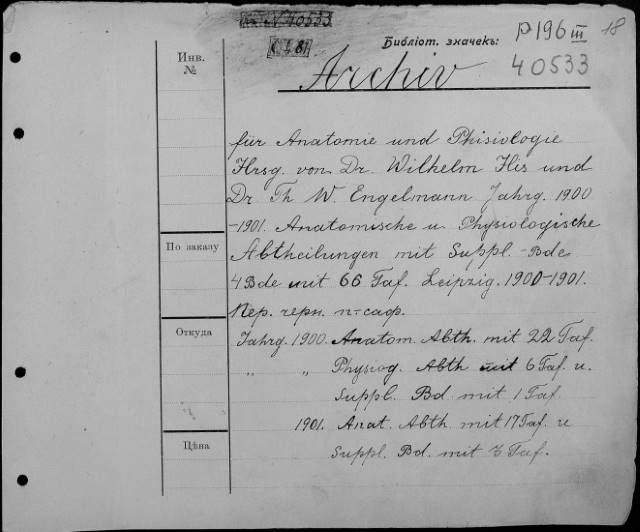 № 40533
Библіот. значекъ: P196 III 18
40533
Archiv
Инв.
№
für Anatomie und Phisiologie
Hrsg. von Dr. Wilhelm His und
Dr Th W. Engelmann Jahrg. 1900
-1901. Anatomische u Physiologische
По заказу
Abtheilungen mit Suppl.-Bde
4 Bde mit 66 Taf. Leipzig. 1900-1901.
Пер. черн. п-саф.
Откуда
Jahrg. 1900. Anatom. Abth. mit 22 Taf.
„ „ Physiog. Abth mit 6 Taf. u.
Suppl. Bd mit 1 Taf
1901. Anat. Abth mit 17 Taf. u
Цѣна
Suppl. Bd. mit Taf.